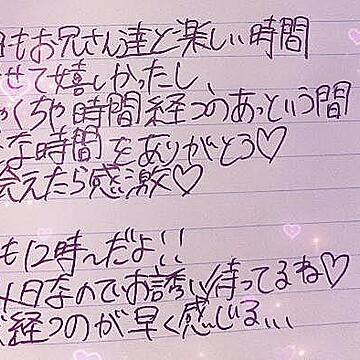 もお兄さん達と楽しい時間
せて嬉しかったし、
くちゃ時間経つのあっという間
な時間をありがとう♡
会えたら感激♡
も12時〜だよ!!
日なのでお誘い待ってるね♡
経つのが早く感じる...